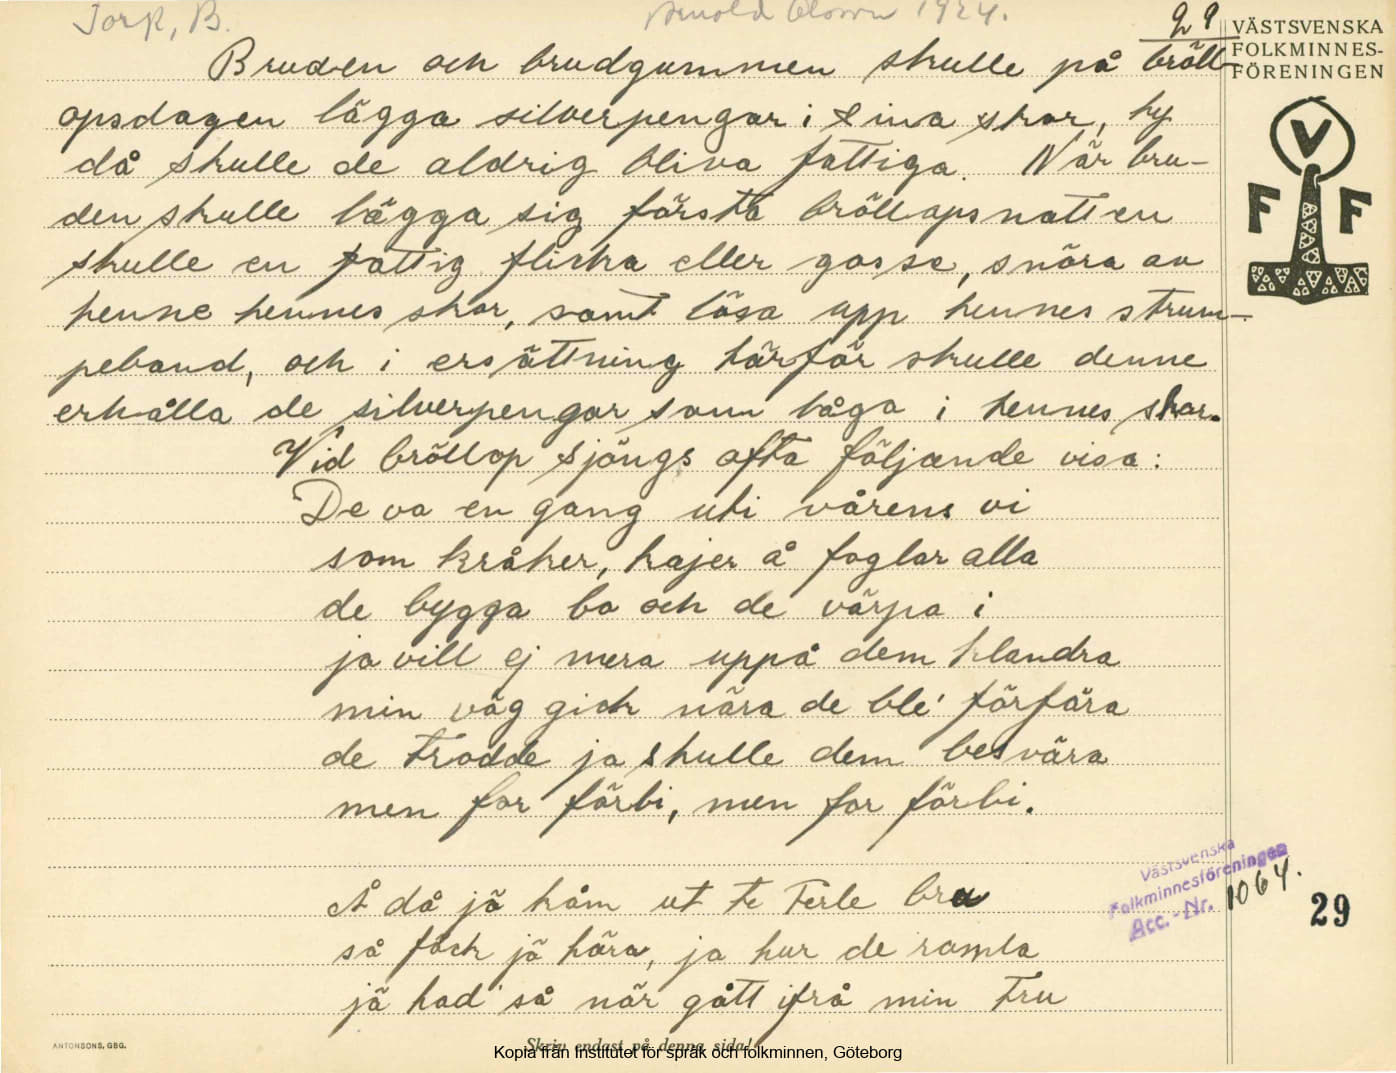 Torp, B. Arnold Olsson 1924. 29
VÄSTSVENSKA
FOLKMINNES-
FÖRENINGEN
V
F F
Bruden och brudgummen skulle på bröll-
opsdagen lägga silverpengar i sina skor, ty
då skulle de aldrig bliva fattiga. När bru-
den skulle lägga sig första bröllopsnatten
skulle en fattig flicka eller gosse, snöra av
henne hennes skor, samt lösa upp hennes strum-
peband, och i ersättning härför skulle denne
erhålla de silverpengar som låga i hennes skor.
Vid bröllop sjöngs ofta följande visa:
De va en gang uti vårens vi
som kråker, kajer å foglar alla
de bygga bo och de värpa i
ja vill ej mera uppå dem klandra
min väg gick nära de ble' förfära
de trodde ja skulle dem besvära
men for förbi, men for förbi.
Å då jä kåm ut te Ferle bru
så fäck jä höra, ja hur de ramla
jä had' så när gått ifrå min fru
Västsvenska
Folkminnesföreningen
Acc.-Nr. 1064.
29
ANTONSONS, GBG.
Skriv endast på denna sida!
Kopia från Institutet för språk och folkminnen, Göteborg